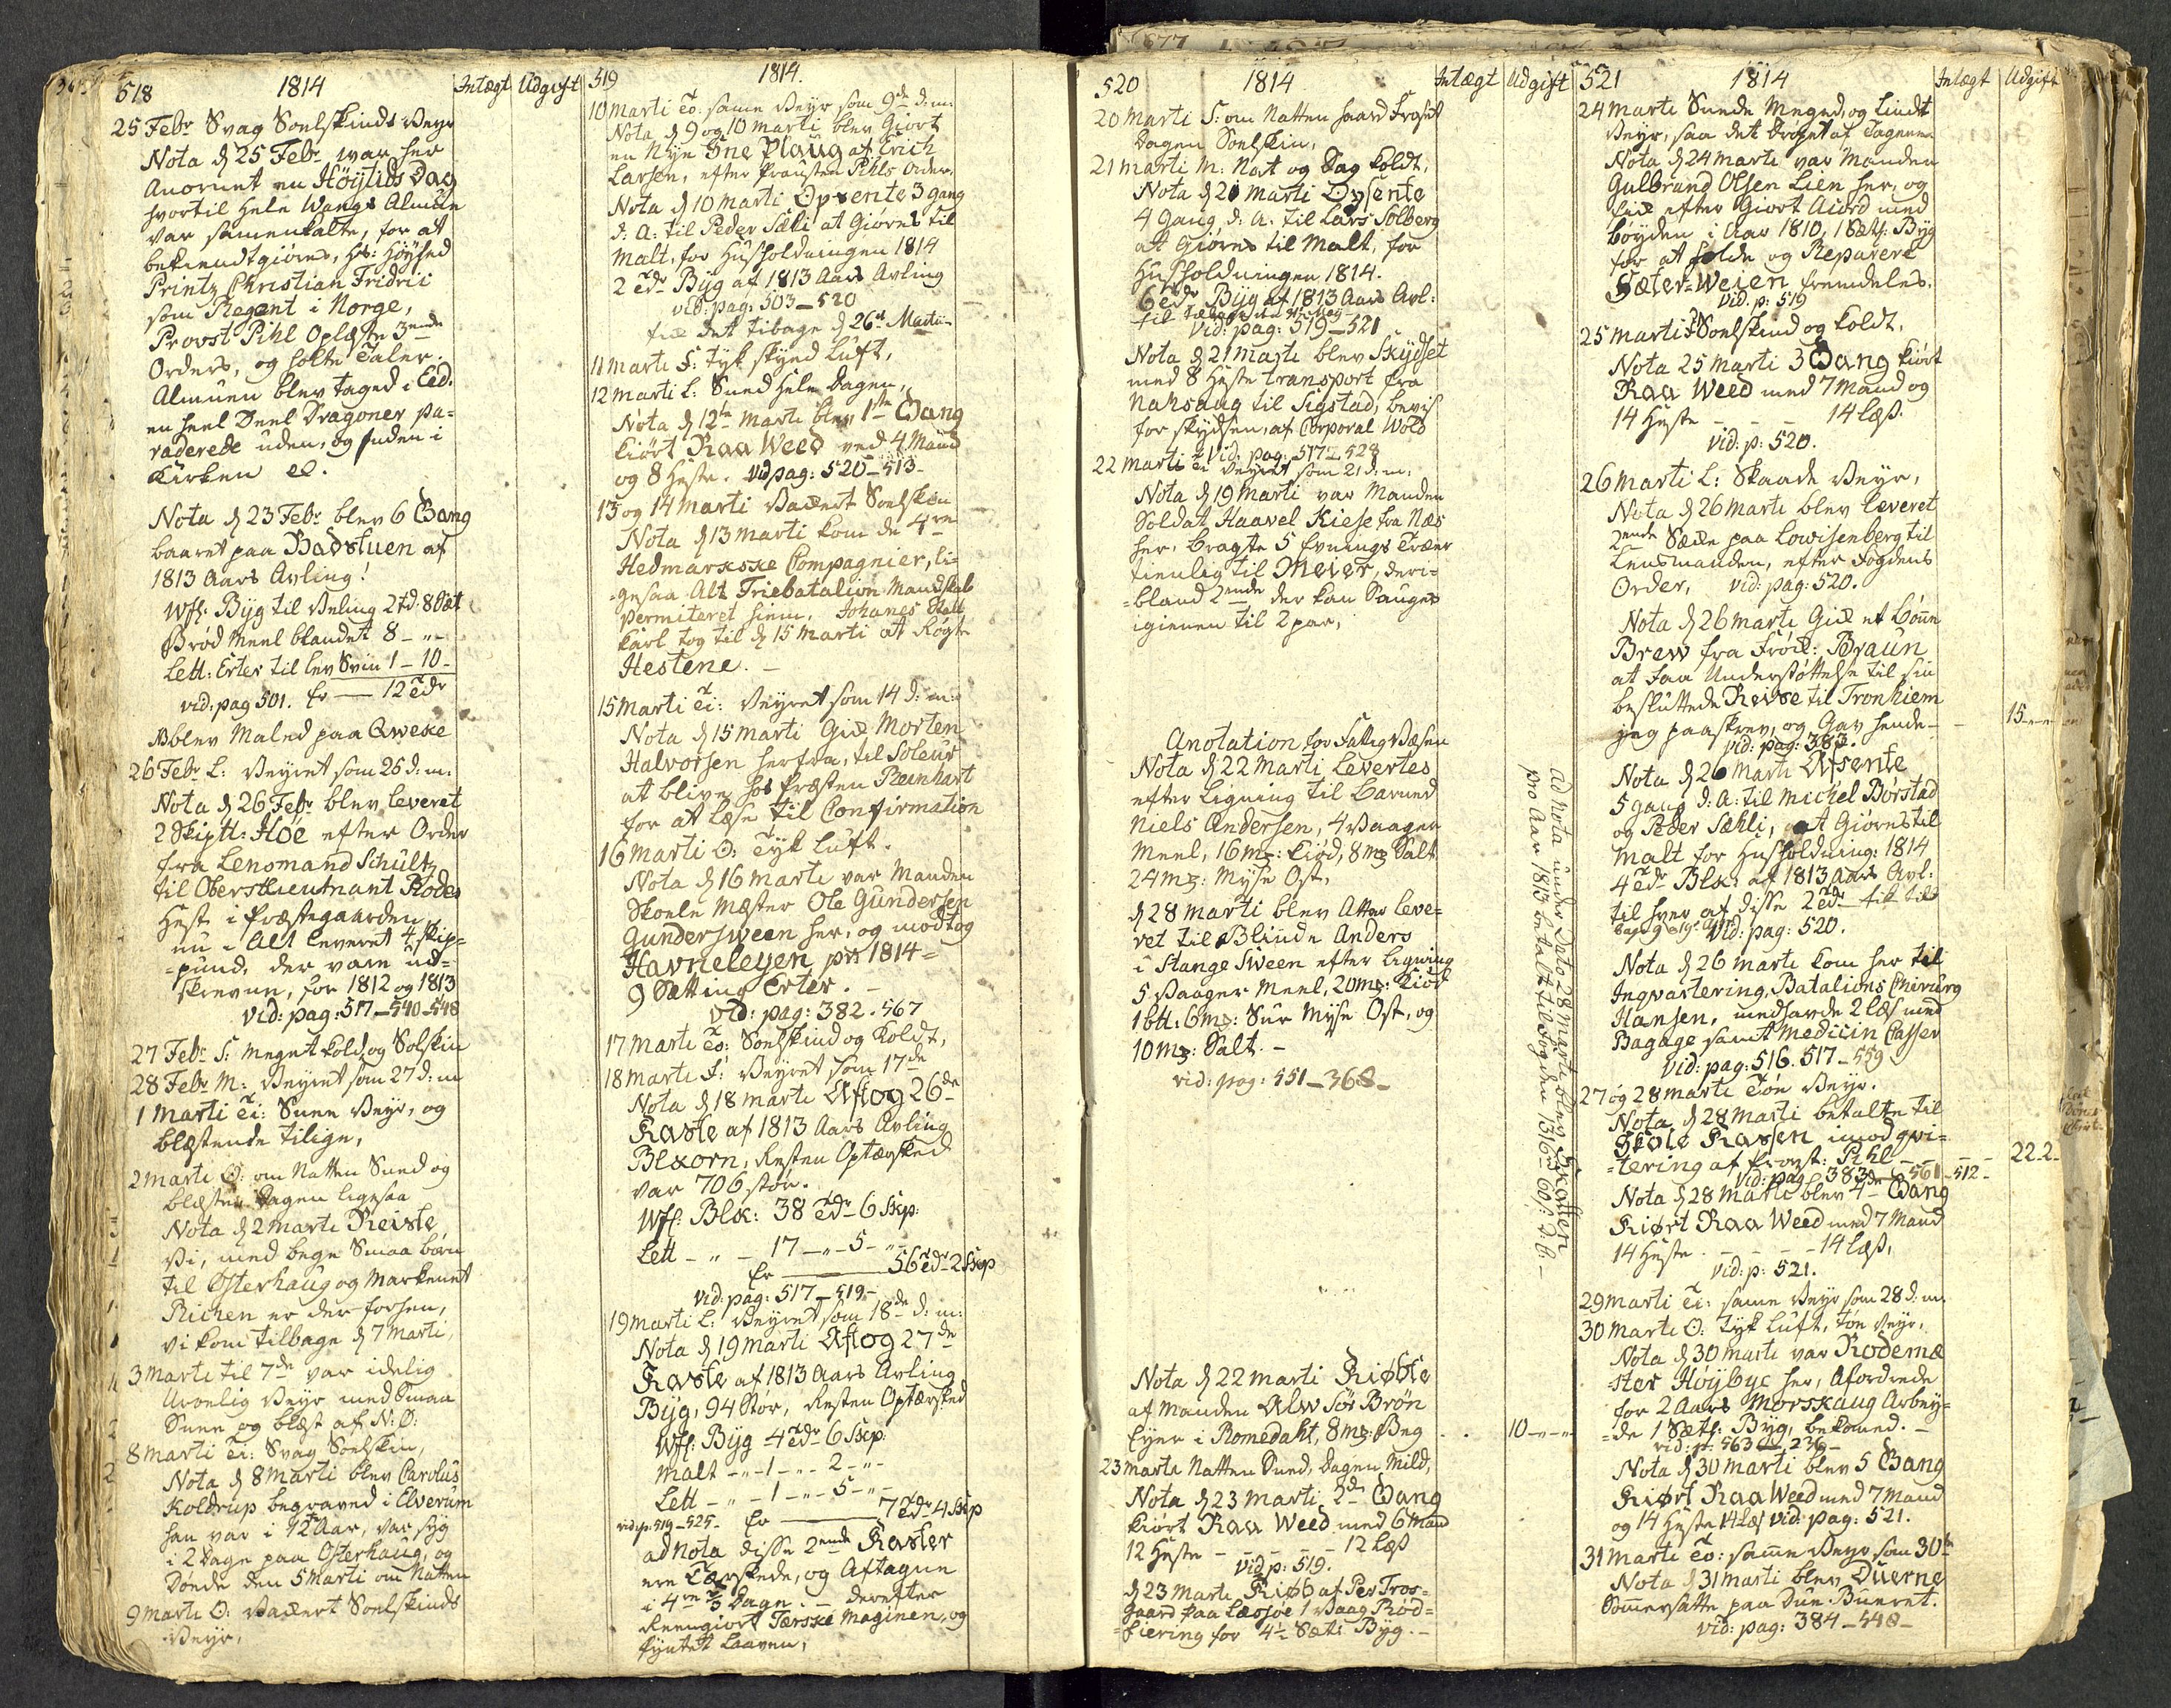 518 1814 Intægt Udgift
25 Febr Svag Soelskinds Veyr
Nota d 25 Febr var her
Anornet en Höytids Dag
hvortil Hele Wangs Almue
var samenkalte, for at
bekiendtgiöres, Hs: Höyhed
Printz Christian Fridrii
som Regent i Norge,
Provst Pihl Oplæste 3ende
Orders, og holte Taler.
Almuen blev taged i Eed.
en heel Deel Dragoner pa=
raderede uden, og inden i
Kirken
Nota d 23 Febr blev 6 Gang
baaret paa Badstuen af
1813 Aars Avling!
Wfs: Byg til Veling 2 td. 8 Sæt
Bröd Meel blandet 8 - " -
Lett: Erter til lev Sviin 1 - 10 -
vid: pag 501. Er — 12 Tdr
NB blev Maled paa Qweke
26 Febr L: Veyret som 25 d: m:
Nota d 26 Febr blev leveret
2 Skiptt: Höe efter Order
fra Lensmand Schultz
til Oberstlieutnant Rodes
Heste i Præstegaarden
nu i Alt leveret 4 skip=
=pund, der vare ud=
skrevne, for 1812 og 1813
vid: pag: 517 - 540 - 548
27 Febr S: meget kold og Solskin
28 Febr M: Veyret som 27 d: m
1 Marti Ti: Snee Veyr, og
blæstende tilige,
2 Marti O: om Natten Sned og
blæste, Dagen ligesaa
Nota d 2 Marti Reiste
Vi, med begge Smaa börn
til Osterhaug og Markenet
Richen er der forhen,
vi kom tilbage d 7 Marti,
3 Marti til 7de var idelig
Urolig Veyr med Smaa
Snee og blæst af N: O:
8 Marti Ti: Svag Soelskin,
Nota d 8 Marti blev Carolus
Koldrup begraved i Elverum
han var i 12 Aar, var syg
i 2 Dage paa Osterhaug, og
Döede den 5 Marti om Natten
9 Marti O: Vakert Soelskinds
Veyr,
519 1814.
10 Marti To: same Veyr som 9de d: m:
Nota d 9 og 10 Marti blev Giort
en Nye Sne Plaug af Erich
Larsen, efter Prousten Pihls Order,
Nota d 10 Marti Opsente 3 gang
d: A: til Peder Sæli at Giöres til
Malt, for Husholdningen 1814
2 Tdr Byg af 1813 Aars Avling
vid: pag: 503 - 520
fik det tibage d 26 Marti -
11 Marti F: tyk skyed Luft,
12 Marti L: Sned Hele Dagen,
Nota d 12te Marti blev 1ste Gang
kiört Raa Weed ved 4 Mand
og 8 Heste. vid pag: 520 - 513 -
13 og 14 Marti Vakert Soelskin
Nota d 13 Marti kom de 4re
Hedmarkske Compagnier, li=
=gesaa Alt Friebatalion Mandskab
permiteret hiem. Johanes Stall
karl tog til d 15 Marti at Rögte
Hestene. -
15 Marti Ti: Veyret som 14 d: m:
Nota d 15 Marti Gik Morten
Halvorsen herfra, til Soleur
at blive hos Præsten Reinhart
for at Læse til Confirmation
16 Marti O: Tyk Luft.
Nota d 16 Marti var Manden
Skoele Mæster Ole Gundersen
Gundersween her, og modtog
Havneleyen pro 1814 =
9 Sætting Erter. -
vid: pag: 382. 567
17 Marti To: Soelskind og Koldt,
18 Marti F: Veyret som 17de
Nota d 18 Marti Aflog 26de
Raste af 1813 Aars Avling
Blkorn, Resten Optærsked
var 706 stör.
Wfs: Blk: 38 Tdr 6 Skp:
Lett - " - 17 - " - 5 - " -
Er — 56 Tdr 2 Skp
vid: pag: 517 - 519 -
19 Marti L: Veyret som 18de d: m:
Nota d 19 Marti Aflog 27de
Raste af 1813 Aars Avling
Byg, 94 Stör, Resten Optærsked
Wfs: Byg - 4 Tdr 6 Skp:
Malt - " - 1 - " - 2 - " -
Lett - " - 1 - " - 5 - " -
vid: p: 519 - 525 - Er — 7 Tdr 4 Skp
ad Nota disse 2ende Raster
ere Tærskede, og Aftagne
i 4re Dage. - derefter
Reengiort Tærske Maginen, og
pyntet Laaven,
520 1814 Intægt Udgift
20 Marti S: om Natten haard Froset
Dagen Soelskin,
21 Marti M: Nat og Dag koldt,
Nota d 21 Marti Opsente
4 Gang d: A: til Lars Solberg
at Giöres til Malt, for
Husholdningen 1814.
6 Tdr Byg af 1813 Aars Avl:
vid: pag: 519 - 521
Nota d 21 Marti blev Skydset
med 8 Heste transport fra
Nahsaug til Sigstad, bevis
for skydsen, af Corporal Wold
vid: pag: 517 - 528
22 Marti Ti Veyret som 21 d: m:
Nota d 19 Marti var Manden
Soldat Haavel Kiese fra Næs
her, bragte 5 Evnings Træer
tienlig til Meier, deri=
=bland 2ende der kan Sauges
igienen til 2 par,
Anotation for Fattig Væsen
Nota d 22 Marti Levertes
efter Ligning til Barned
Niels Andersen, 4 Vaager
Meel, 16 m: kiöd, 8 m Salt
24 m: Myse Ost,
d 28 Marti blev Atter leve=
ret til Blinde Anders
i Stange Sween efter Ligning
5 Vaager Meel, 20 m: Kiöd
1 btt: 6 m: Sur Myse Ost, og
10 m: Salt. -
vid: pag: 551 - 368 -
Nota d 22 Marti Kiöbte
af Manden Alw Sör Brön
Eyer i Romedahl, 8 m: Beg . . 10 - " - "
23 Marti Natten Sned, Dagen Mild,
Nota d 23 Marti 2de Gang
kiört Raa Weed med 6 Mand
12 Heste - - - - 12 Læss
vid p: 519.
d 23 Marti Kiöb af Per Tros=
gaard paa Læsjoe 1 Vaag Röd=
=kiering for 4½ Sæt: Byg. -
ad Nota under Dato 28 Marti blev Skatten
pro Aar 1813 betalt til Fogden 1316
521 1814 Intægt Udgift
24 Marti Snede Meged, og Lindt
Veyr, saa det Dröpet af Tagene
Nota d 24 Marti var Manden
Gulbrand Olsen Lien her, og
fik efter Giort Acord med
böyden i Aar 1810, 1 Sæts: Byg
for at holde og Reparere
Sæter=Weien fremdeles.
vid. p: 519
25 Marti F Soelskind og koldt,
Nota 25 Marti 3 Gang kiört
Raa Weed med 7 Mand og
14 Heste - - - 14 Læss.
vid: p: 520.
26 Marti L: Skaade Veyr,
Nota d 26 Marti blev leveret
2ende Sække paa Lowisenberg til
Lensmanden, efter Fogdens
Order, vid: pag: 520.
Nota d 26 Marti Gik et bönne
Brew fra Frök: Braun
at faa Understöttelse til sin
besluttede Reise til Tronhiem
jeg paaskrev, og Gav hende - - 15 - " - "
vid: pag: 383.
Nota d 26 Marti Afsente
5 gang d: A: til Michel Börstad
og Peder Sæhli, at Giöres til
Malt for Husholdning: 1814
4 Tdr Blk: af 1813 Aars Avl:
til hver af disse 2 Tdr
vid: pag: 520.
Nota d 26 Marti kom her til
Inqvartering, Batalions Chirurg
Hansen, medhavde 2 læs med
Bagage samt Medicin Casser
vid: pag: 516. 517 - 559
27 og 28 Marti Töe Veyr.
Nota d 28 Marti betalte til
Skole Kassen imod qvi=
=tering af Provst: Pihl - - - 22.2.
vid: pag 383 - 561 - 512 -
Nota d 28 Marti blev 4de Gang
Kiört Raa Weed med 7 Mand
14 Heste - - - - 14 Læss,
vid: p: 521.
29 Marti Ti: same Veyr som 28 d: m.
30 Marti O: Tyk Luft, töe Veyr,
Nota d 30 Marti var Rodemæ
=ster Höybye her, Afordrede
for 2 Aars Morskaug Arbey=
=de 1 Sæts: Byg, bekomed. -
vid: p: 563 236 -
Nota d 30 Marti blev 5 Gang
Kiört Raa Weed med 7 Mand
og 14 Heste 14 Læs vid: pag: 521.
31 Marti To: same Veyr som 30te
Nota d 31 Marti blev Duerne
Somersatte paa Due Bueret.
vid: pag: 384 - 448 -